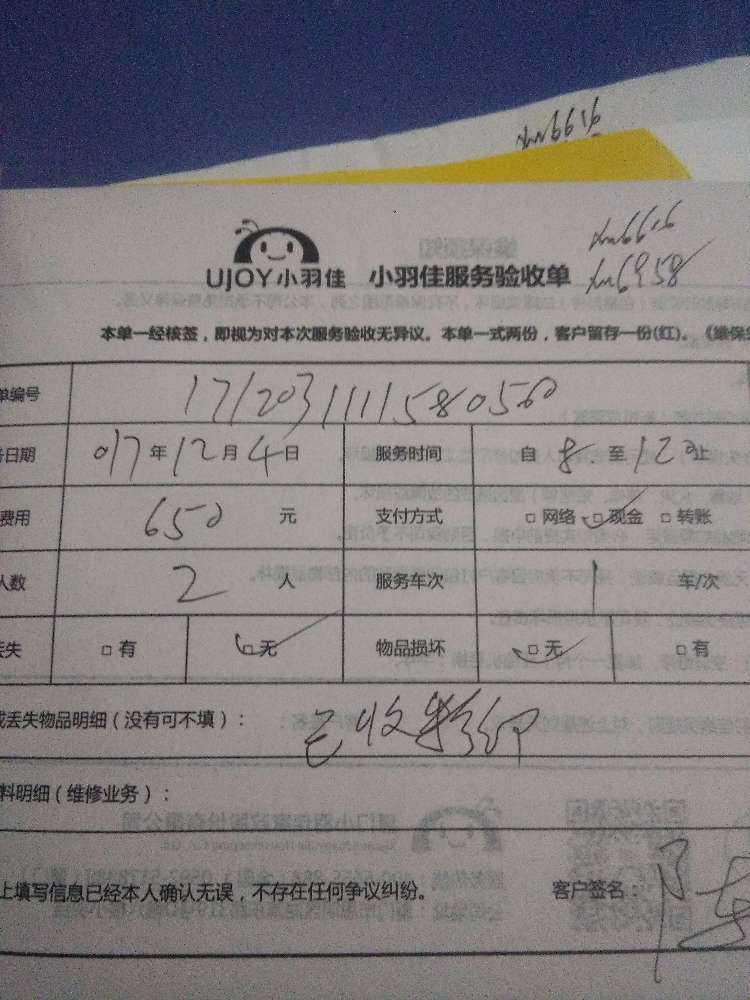 xm6616
xm6616
UJOY小羽佳 小羽佳服务验收单 xm6958
本单一经核签，即视为对本次服务验收无异议。本单一式两份，客户留存一份(红)。《维保
单编号 1712031111580560
日期 017年12月4日 服务时间 自8至120止
费用 650 元 支付方式 □网络 □现金 □转账
人数 2 人 服务车次 1 车/次
丢失 □有 □无 物品损坏 □无 □有
或丢失物品明细（没有可不填）： 已收
料明细（维修业务）：
上填写信息已经本人确认无误，不存在任何争议纠纷。 客户签名：